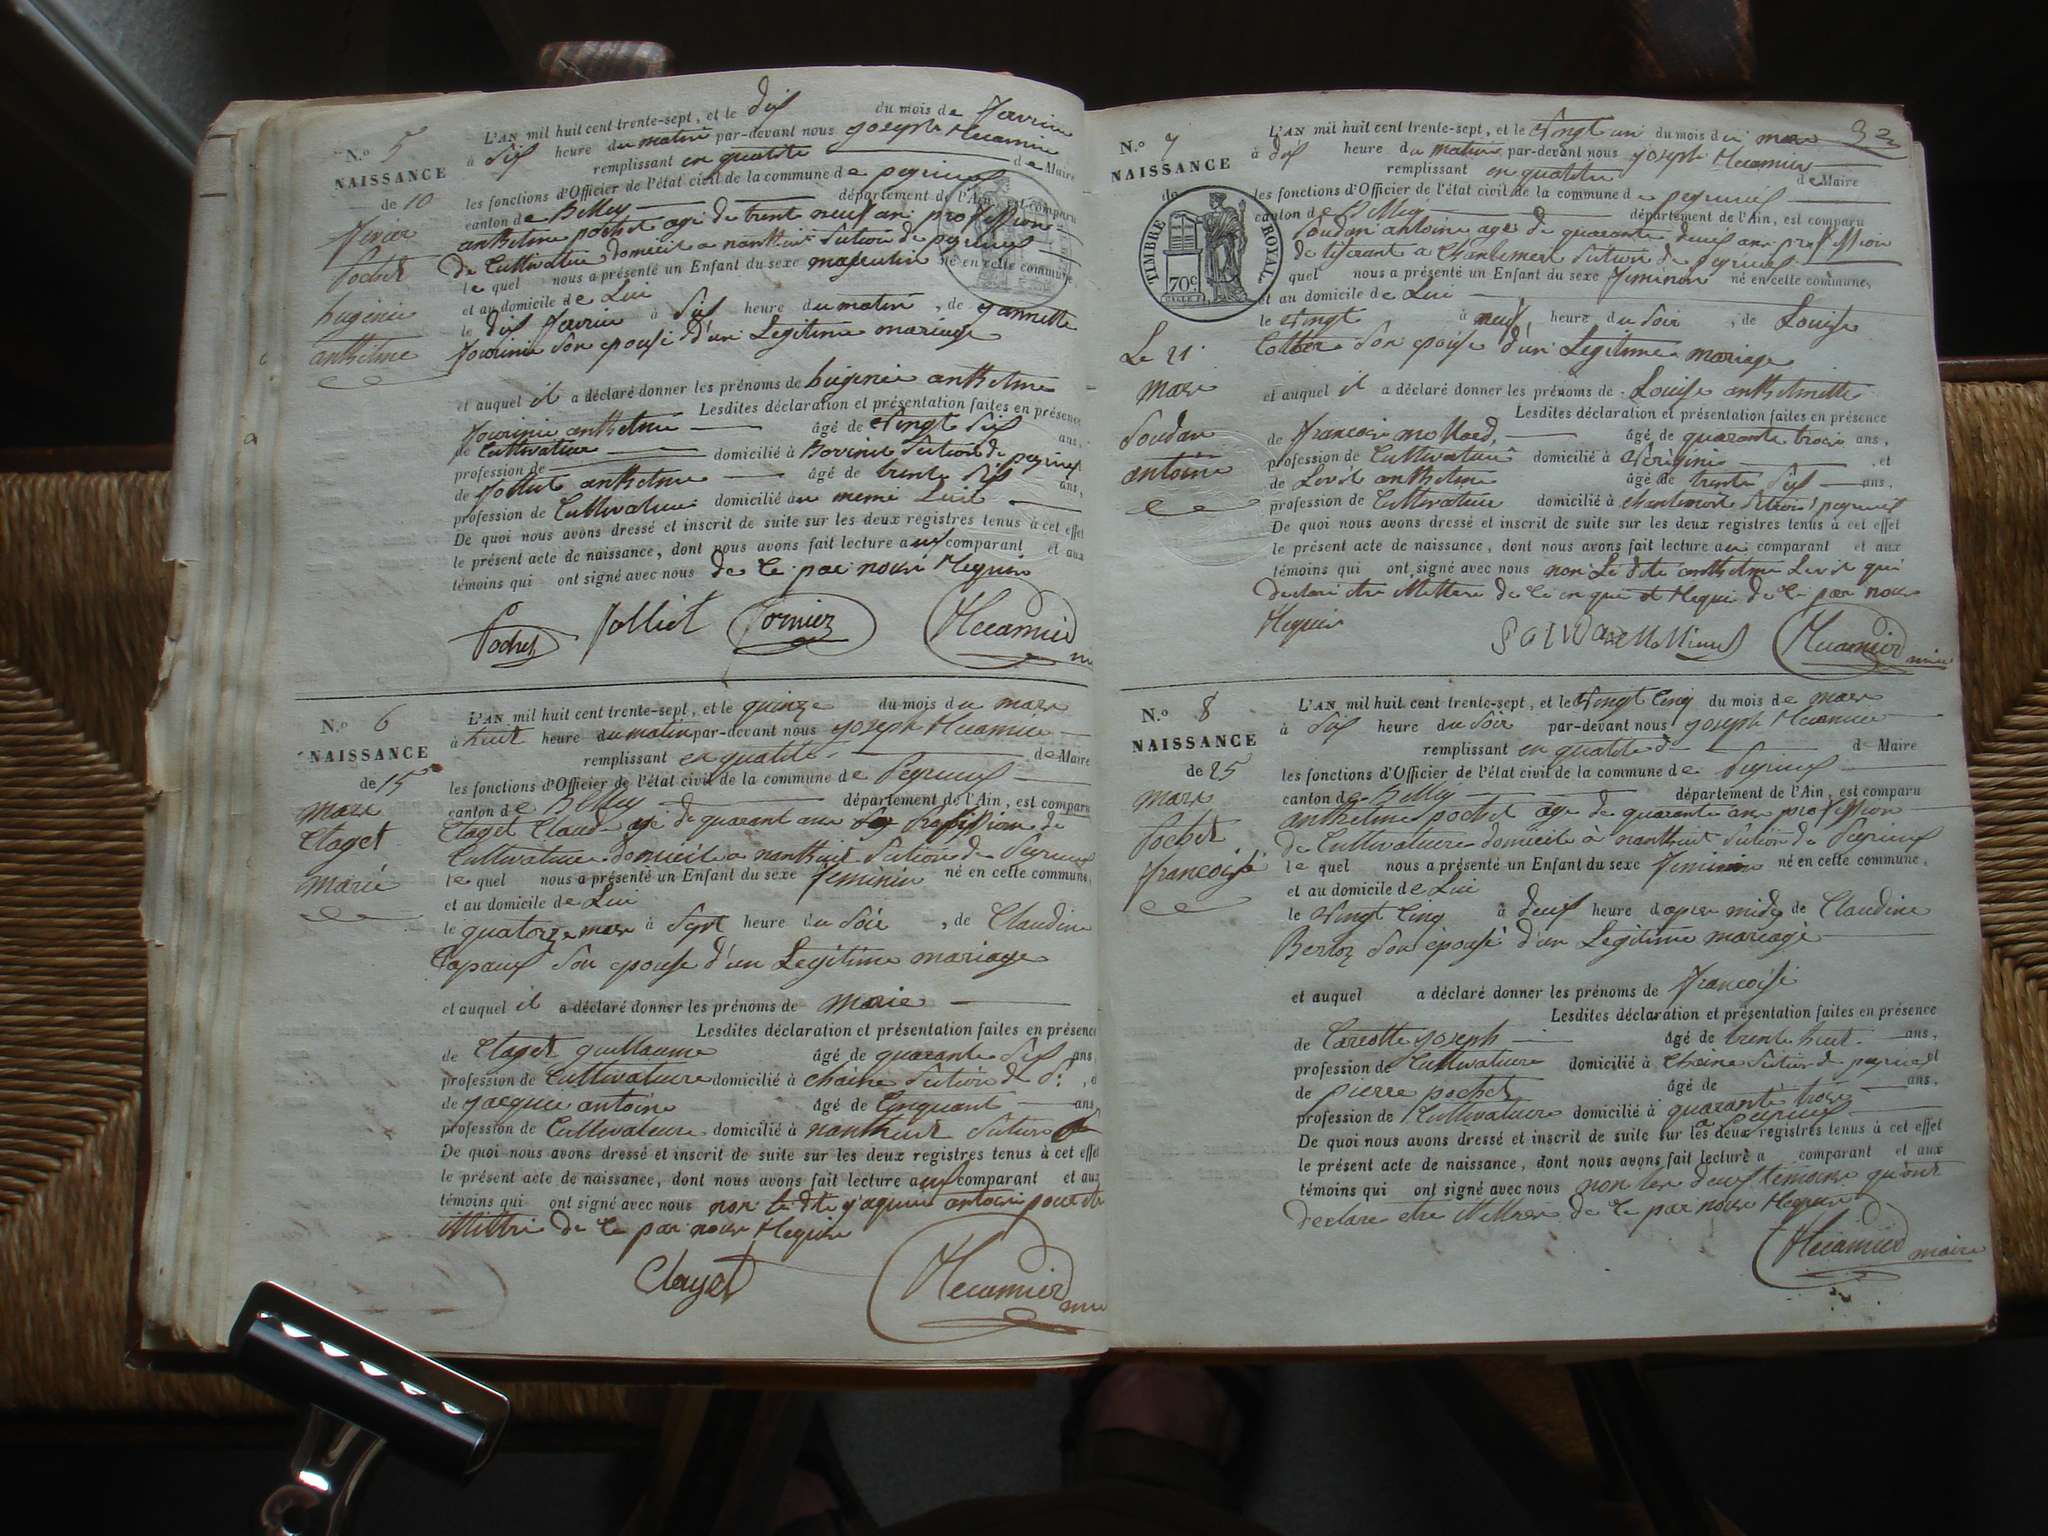 N.º 5
NAISSANCE
de 10
fevrier
Pochet
Eugénie
anthelme
L'AN mil huit cent trente-sept, et le dix du mois de fevrier
à six heure du matin par-devant nous joseph Récamier
remplissant en qualité de Maire
les fonctions d'Officier de l'état civil de la commune de peyrieux
canton de Belley département de l'Ain, est comparu
anthelme pochet agé de trent neuf an profession
de Cultivature domicilé a nanthui Section de peyrieux
le quel nous a présenté un Enfant du sexe masculin né en cette commune
et au domicile de Lui
le dix fevrier à six heure du matin, de jannette
son epouse d'un Legitime mariage
et auquel il a déclaré donner les prénoms de Eugenie anthelme
Lesdites déclaration et présentation faites en présence
de anthelme âgé de vingt six ans,
profession de Cultivature domicilié à Section de peyrieux
de anthelme âgé de trente six ans,
profession de Cultivature domicilié au meme Lieu
De quoi nous avons dressé et inscrit de suite sur les deux registres tenus à cet effet
le présent acte de naissance, dont nous avons fait lecture aux comparant et aux
témoins qui ont signé avec nous de ce par nous Requis
Pochet Jolliet Récamier
N.º 6
NAISSANCE
de 15
mars
Claget
marie
L'AN mil huit cent trente-sept, et le quinze du mois du mars
à huit heure du matin par-devant nous joseph Récamier
remplissant en qualité de Maire
les fonctions d'Officier de l'état civil de la commune de Peyrieux
canton de Belley département de l'Ain, est comparu
Claget Claude agé de quarant ans profession de
Cultivature domicilé a nanthuit Section de Peyrieux
le quel nous a présenté un Enfant du sexe feminin né en cette commune,
et au domicile de Lui
le quatorze mars à sept heure du Soir, de Claudine
son epouse d'un Legitime mariage
et auquel il a déclaré donner les prénoms de marie
Lesdites déclaration et présentation faites en présence
de Claget guillaume âgé de quarante six ans,
profession de Cultivature domicilié à Section de P.
de jacquie antoine âgé de Cinquant ans,
profession de Cultivature domicilié à nanthuit Section
De quoi nous avons dressé et inscrit de suite sur les deux registres tenus à cet effet
le présent acte de naissance, dont nous avons fait lecture aux comparant et aux
témoins qui ont signé avec nous non le dit jaquie antoine pour etre
illittre de ce par nous Requis
Récamier
N.º 7
NAISSANCE
de
TIMBRE ROYAL
70c
Le 21
mars
Soudan
antoine
32
L'AN mil huit cent trente-sept, et le vingt un du mois de mars
à dix heure du matin par-devant nous joseph Récamier
remplissant en qualité de Maire
les fonctions d'Officier de l'état civil de la commune de peyrieux
canton de Belley département de l'Ain, est comparu
Soudan antoine agé de quarante deux ans profession
de tiserant a Section de Peyrieux
quel nous a présenté un Enfant du sexe feminin né en cette commune,
et au domicile de Lui
le vingt à neuf heure du soir, de Louise
son epouse d'un Legitime mariage
et auquel il a déclaré donner les prénoms de Louise anthelmette
Lesdites déclaration et présentation faites en présence
de francois âgé de quarante trois ans,
profession de Cultivature domicilié à et
de anthelme âgé de trente six ans,
profession de Cultivature domicilié à Section peyrieux
De quoi nous avons dressé et inscrit de suite sur les deux registres tenus à cet effet
le présent acte de naissance, dont nous avons fait lecture au comparant et aux
témoins qui ont signé avec nous non Le dit anthelme qui
declare etre illittere de ce que Requi de ce par nous
Requis
Récamier maire
N.º 8
NAISSANCE
de 25
mars
Pochet
francoise
L'AN mil huit cent trente-sept, et le vingt Cinq du mois de mars
à six heure du soir par-devant nous joseph Récamier
remplissant en qualité de de Maire
les fonctions d'Officier de l'état civil de la commune de Peyrieux
canton de Belley département de l'Ain, est comparu
anthelme pochet agé de quarante ans profession
de Cultivature domicile à nanthuit Section de Peyrieux
le quel nous a présenté un Enfant du sexe feminin né en cette commune,
et au domicile de Lui
le vingt Cinq à deux heure d'apres midy de Claudine
Bertoz son epouse d'un Legitime mariage
et auquel a déclaré donner les prénoms de francoise
Lesdites déclaration et présentation faites en présence
de joseph âgé de trente huit ans,
profession de Cultivature domicilié à Section de peyrieux et
de pierre pochet âgé de quarante trois ans,
profession de Cultivature domicilié à peyrieux
De quoi nous avons dressé et inscrit de suite sur les deux registres tenus à cet effet
le présent acte de naissance, dont nous avons fait lecture a comparant et aux
témoins qui ont signé avec nous non les deux témoins qu'ont
declare etre de ce par nous Requis
Récamier maire